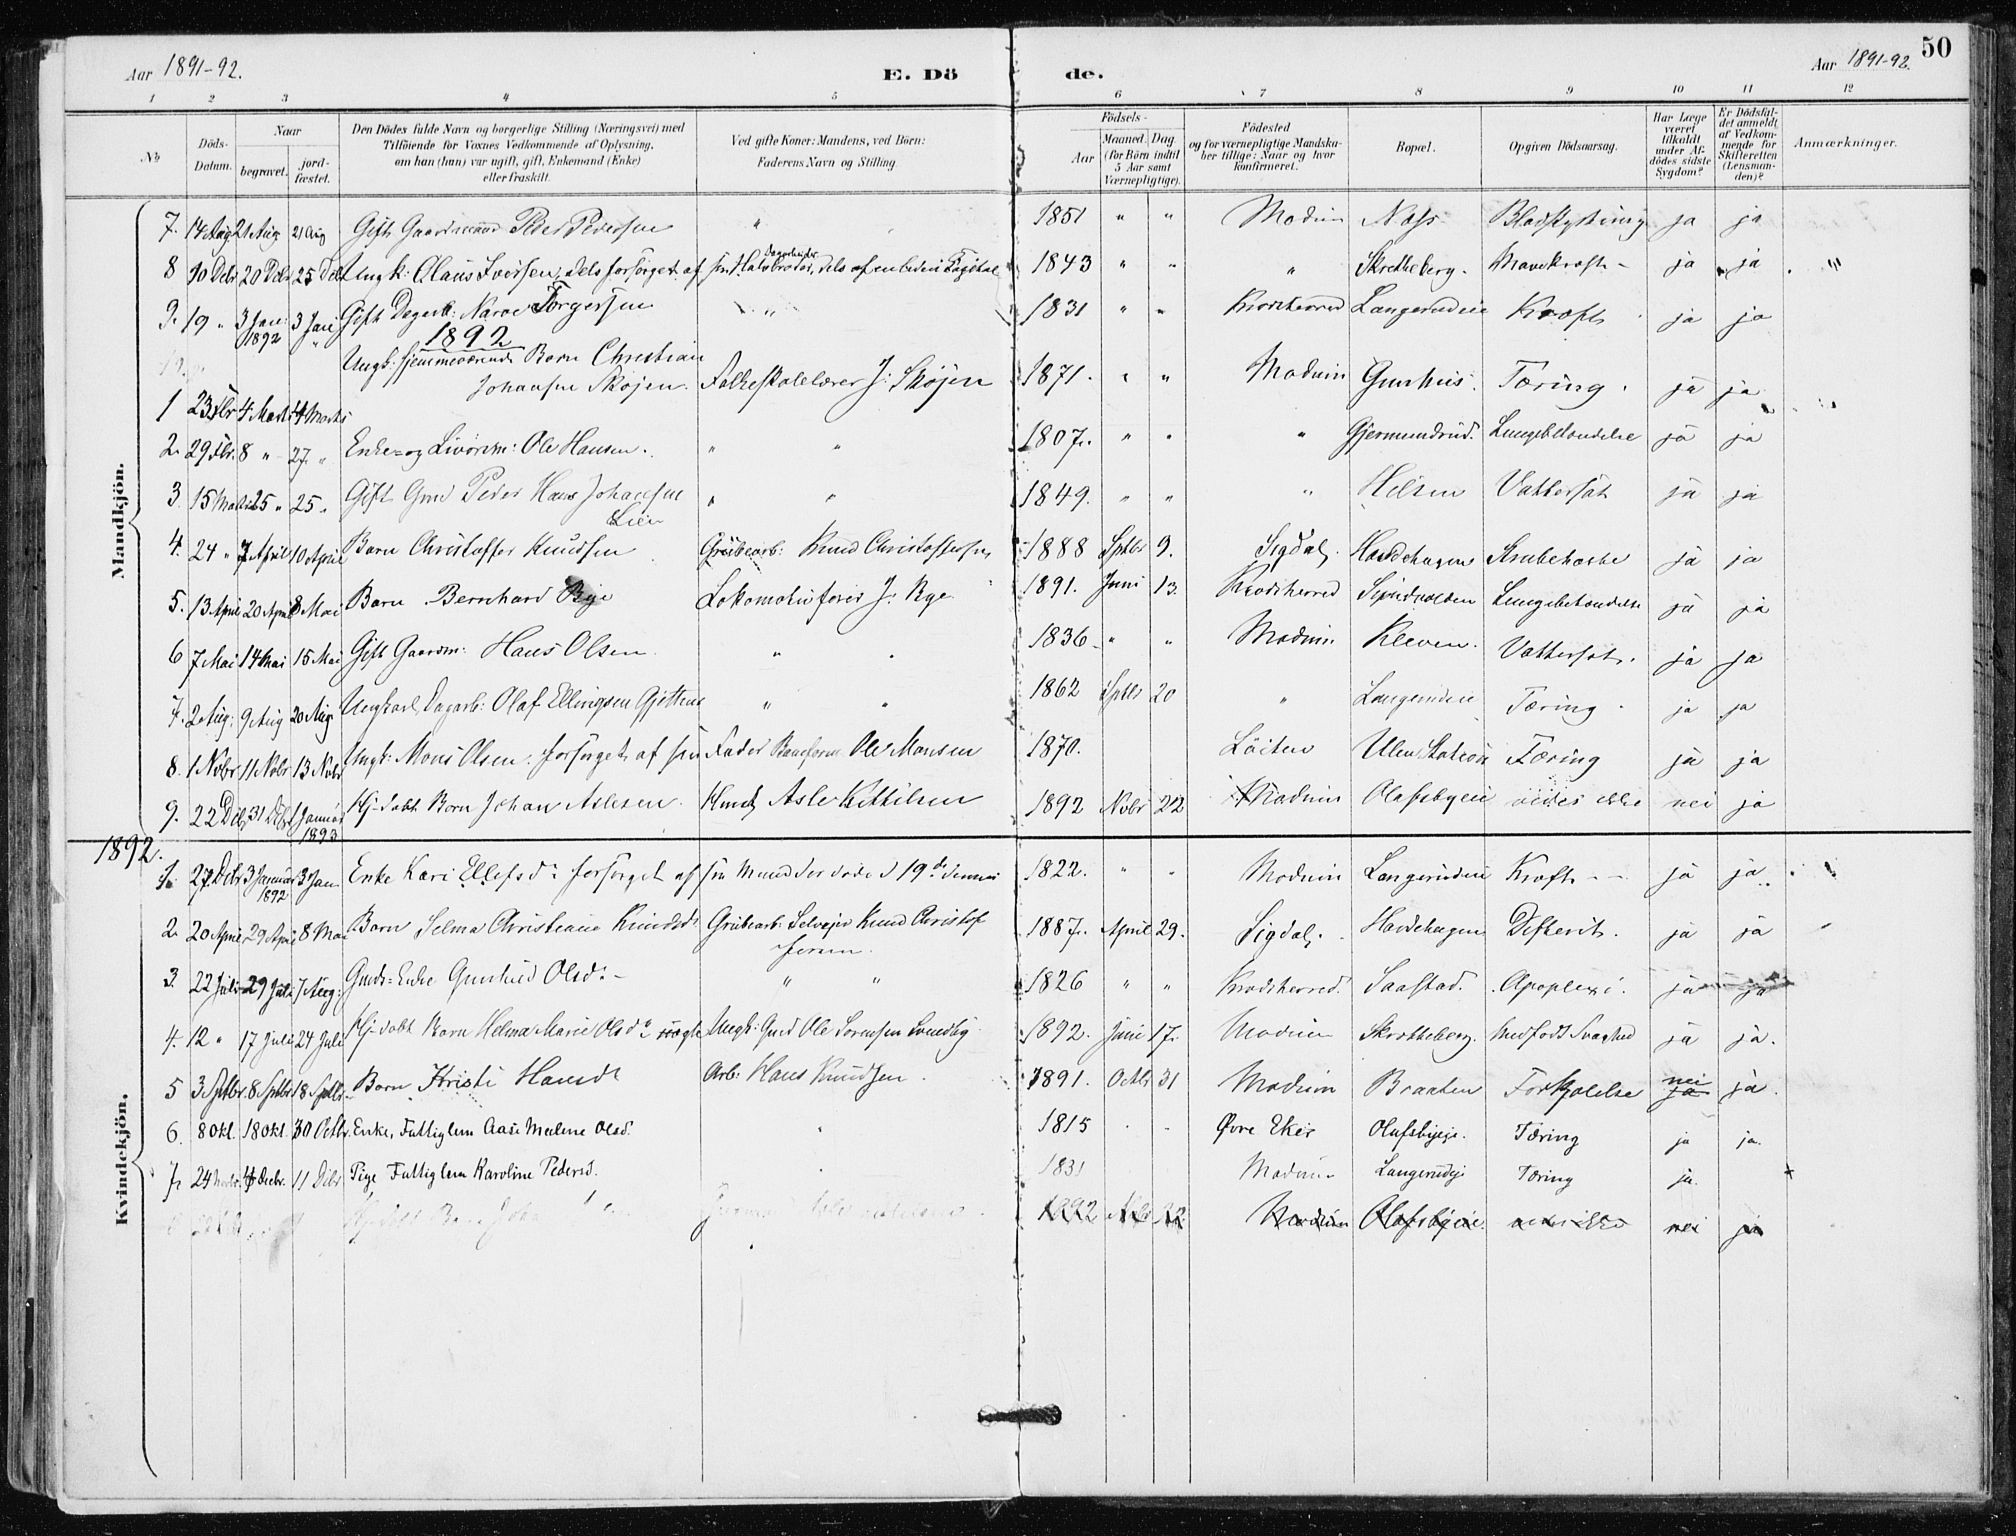 Aar 1891-92. E. Dö de. Aar 1891-92. 50
1 2 3 4 5 6 7 8 9 10 11 12
No Döds-Datum. Naar begravet. jord-fæstet. Den Dödes fulde Navn og borgerlige Stilling (Næringsvei) med Tilföiende for Voxnes Vedkommende af Oplysning, om han (hun) var ugift, gift, Enkemand (Enke) eller fraskilt. Ved gifte Koner: Mandens, ved Börn: Faderens Navn og Stilling. Födsels- Aar Maaned. Dag (for Börn indtil 5 Aar samt Værnepligtige). Födested og for værnepligtige Mandska-ber tillige: Naar og hvor konfirmeret. Bopæl. Opgiven Dödsaarsag. Har Læge været tilkaldt under Af-dödes sidste Sygdom? Er Dödsfal-det anmeldt af Vedkom-mende for Skifteretten (Lensman-den)? Anmærkninger.
Mandkjön.
7. 14 Aug 21 Aug 21 Aug Gift Gaardmand Peder Pedersen " 1851 " " Modum Næss Blodstyrtning ja ja
8 10 Dcbr 20 Dcbr 25 Dcbr Ungk: Olaus Iversen, dels forsørget af sin Halvbroder, dels af en liden Kapital 1843 " " " Skretteberg. Mavekræft ja ja
9. 19 " 3 Jan: 1892 3 Jan Gift Dagarb: Narve Torgersen " 1831 " " Krødsherred Langerudeie Kræft ja ja
1892
Ungk: hjemmeværende Barn Christian
1 23 Fbr 4 Marts 4 Marts Johansen Skøjen. Folkeskolelærer J: Skøjen 1871. " " Modum Gunhus. Tæring. ja ja
2. 29 Fbr. 8 " 27 " Enke- og Livørem: Ole Hansen. " " 1807. " " " Gjermundrud. Lungebetændelse ja ja
3 15 Marts 25 " 25 " Gift Gmd Peder Hans Johansen " " 1849. " " " Hilsen Vattersot ja ja
Lien
4. 24 " 7 April 10 April Barn Christoffer Knudsen Grubearb: Knud Christoffersen 1888 Sptbr 9. Sigdal, Hovdehagen Strubehoste ja ja
5. 13 April 20 April 8 Mai Barn Bernhard Rye Lokomotivfører J: Rye 1891. Juni 13. Krødsherred Lungebetændelse ja ja
6 7 Mai 14 Mai 15 Mai Gift Gaardm: Hans Olsen " 1836 " " Modum Kleven. Vattersot. ja ja
7. 2 Aug: 9 Aug 20 Aug Ungkarl Dagarb: Olaf Ellingsen " " 1862 Sptbr 20 " Langerudeie Tæring ja ja
8. 1 Nvbr 11 Nvbr 13 Nvbr Ungk: Mons Olsen. forsørget af sin Fader Baneform. Ole Monsen 1870. Løiten Ulen Station Tæring ja ja
9. 22 Dcbr 31 Dcbr 1 Januar 1893 Hj-døbt Barn Johan Aslesen. Asle Kittilsen 1892 Nvbr 22 Modum Olafsbyeie vides ikke nei ja
1892.
Kvindekjön.
1. 27 Dcbr 3 Januar 1892 3 Jan Enke Kari Ellefsd: forsørget af sin Mand der døde d 19de dennes 1822. " " Modum Langerudeie Kræft ja ja
2. 20 April 29 April 8 Mai Barn Selma Christiane Knudsd. Grubearb: Selvejer Knud Christof 1887. April 29. Sigdal. Hovdehagen Difterit. ja ja
fersen.
3. 22 Juli 29 Juli 7 Aug: Gmds= Enke Gunhild Olsd: " " 1826 " " Krødsherred. Saastad. Apoplexi. ja ja
4. 12 " 17 Juli 24 Juli Hj-døbt Barn Helma Marie Olsd: uægte Ungk: Gmd Ole Sørensen Svendby 1892. Juni 17. Modum Skretteberg. Medfødt Svaghed ja ja.
5 3 Sptbr 8 Sptbr 18 Sptbr. Barn Kristi Hansd: Arb: Hans Knudsen 1891. Octbr 31 Modum Braaten Forkjølelse nei ja ja.
6. 8 Okt. 18 Okt. 30 Octbr. Enke, Fattiglem Aase Malene Olsd. " 1815 " " Øvre Eker Olafsbyeje. Tæring ja ja.
7. 24 Novbr. 4 Decbr. 11 Dcbr Pige Fattiglem Karoline Pedersd. " 1831 Modum Langerudeje Tæring ja.
1892 Nvbr 22 Modum Olafsbyeie vides ikke nei ja